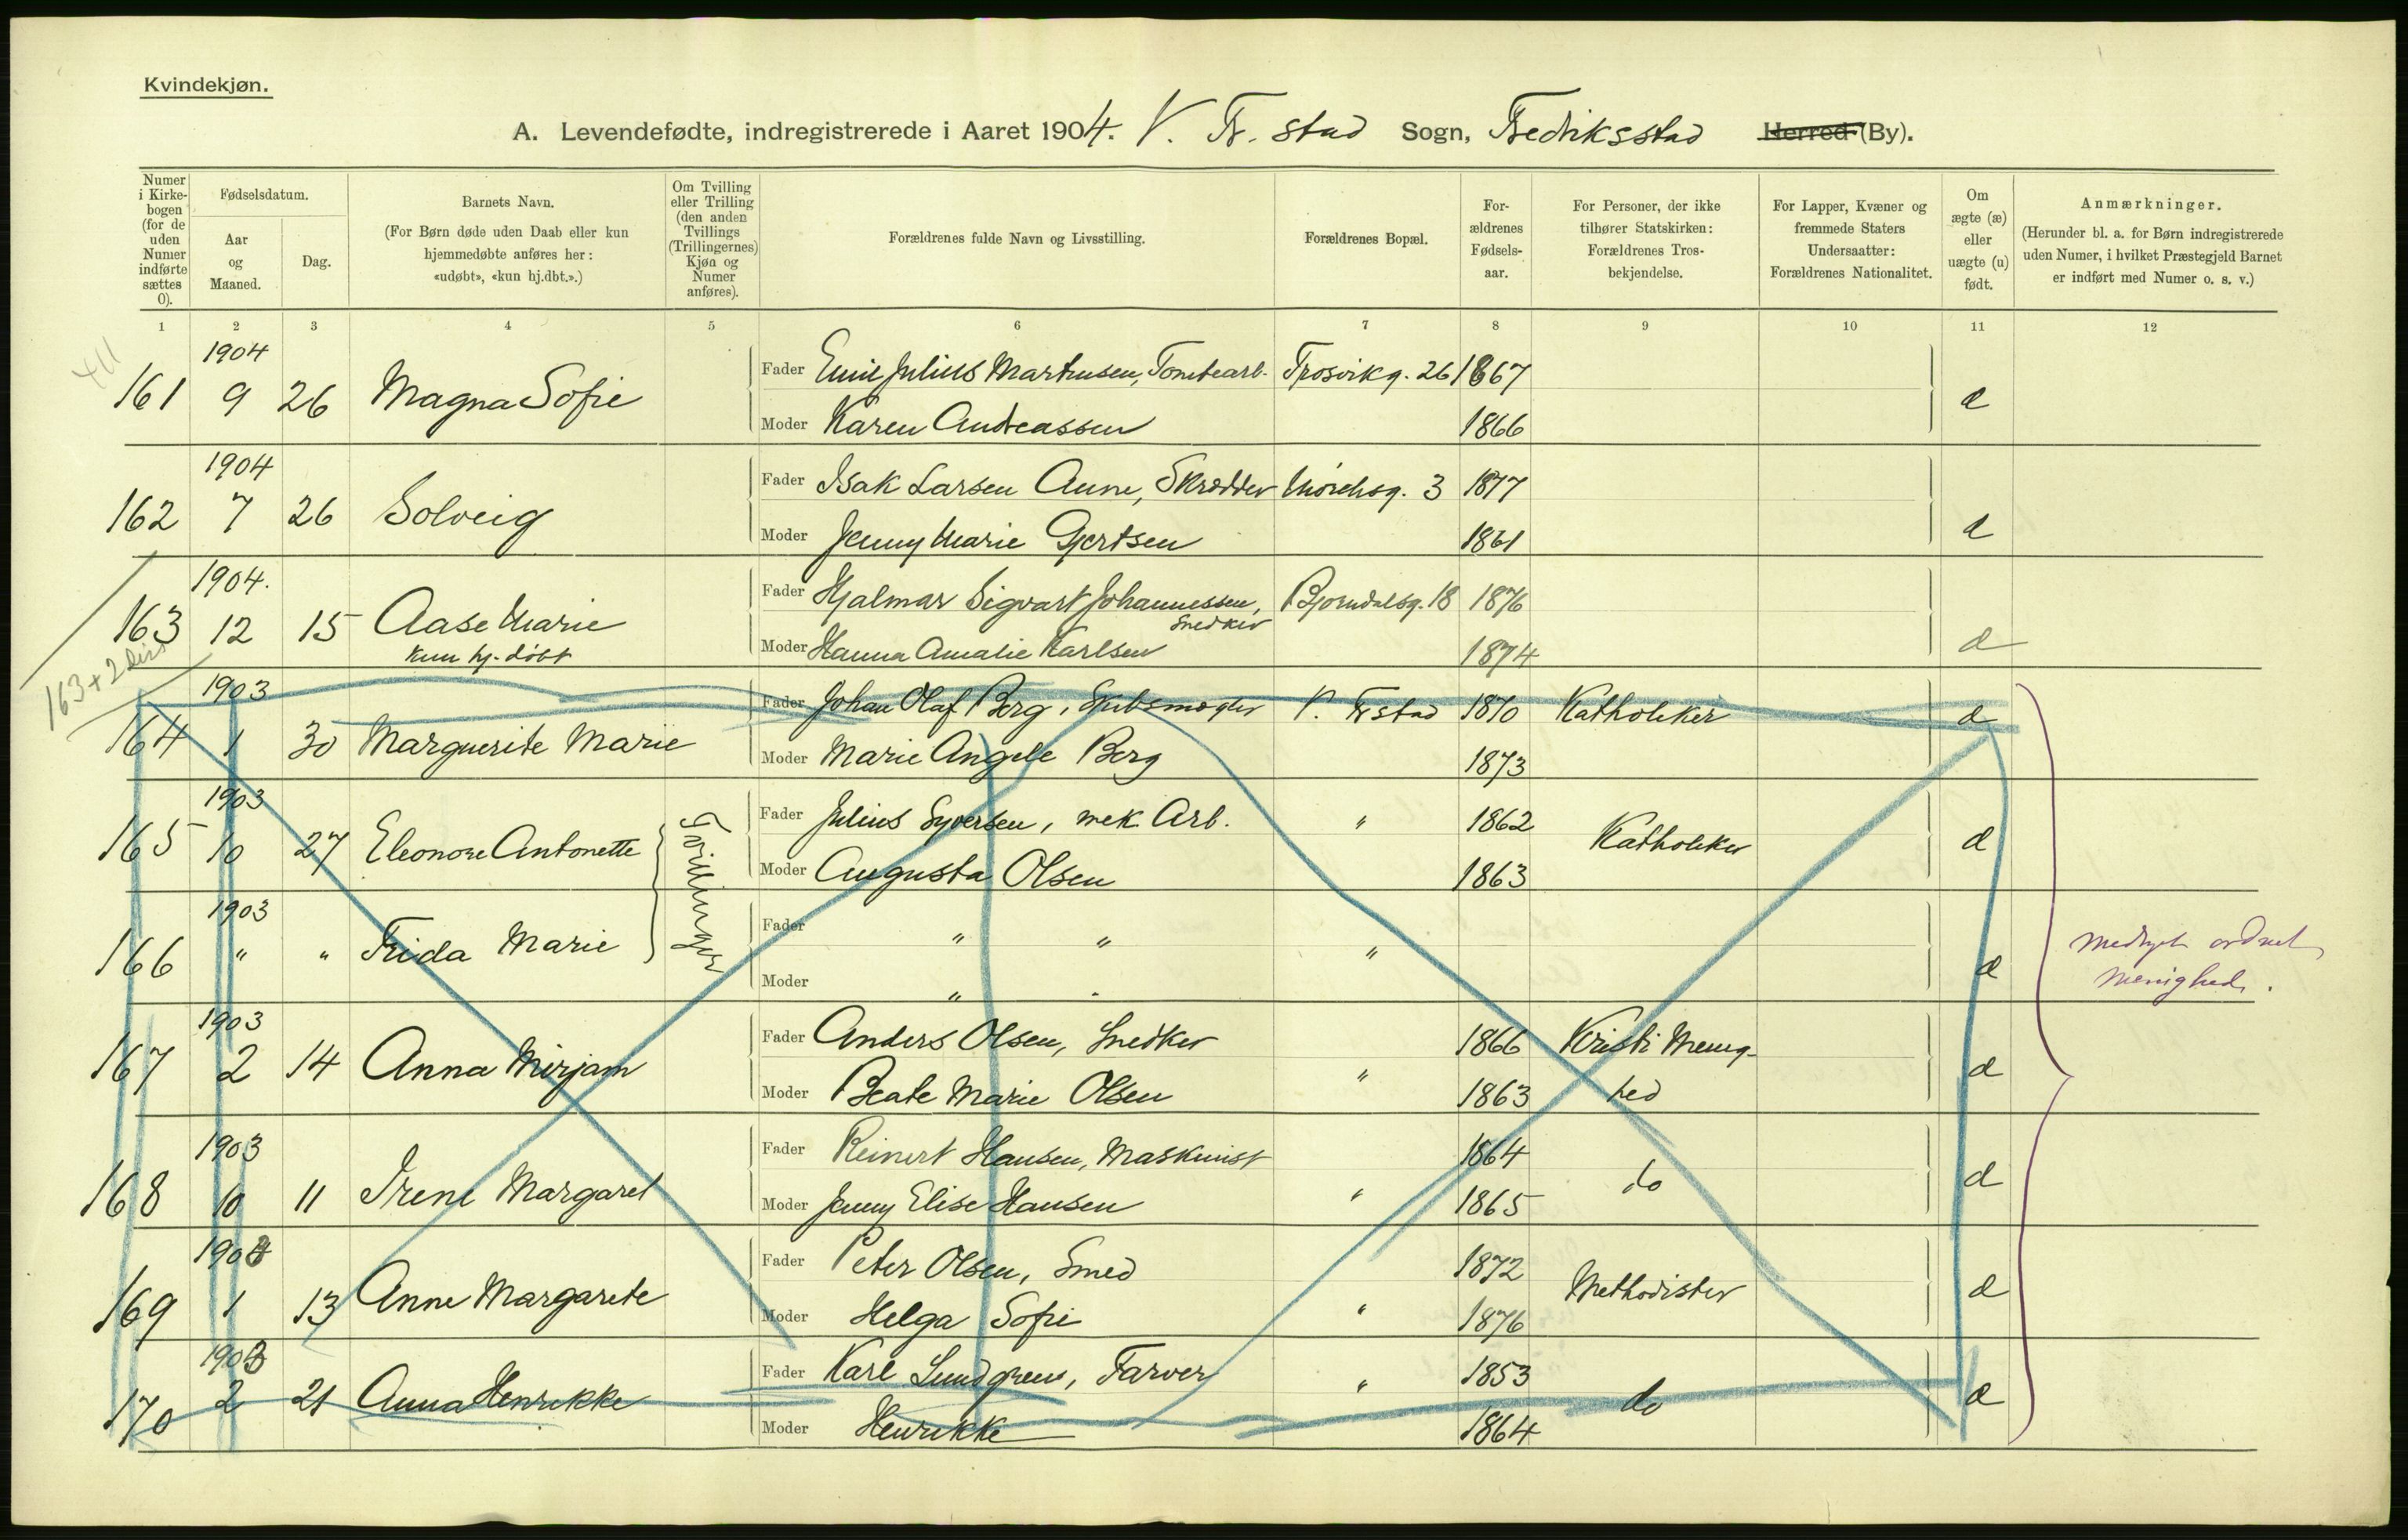 Kvindekjøn.
A. Levendefødte, indregistrerede i Aaret 1904. V. Fr. stad Sogn, Fredriksstad Herred (By).
Numer i Kirkebogen (for de uden Numer indførte sættes 0).
Fødselsdatum.
Aar og Maaned.
Dag.
Barnets Navn.
(For Børn døde uden Daab eller kun hjemmedøbte anføres her: «udøbt», «kun hj.dbt.».)
Om Tvilling eller Trilling (den anden Tvillings (Trillingernes) Kjøn og Numer anføres).
Forældrenes fulde Navn og Livsstilling.
Forældrenes Bopæl.
Forældrenes Fødselsaar.
For Personer, der ikke tilhører Statskirken: Forældrenes Trosbekjendelse.
For Lapper, Kvæner og fremmede Staters Undersaatter: Forældrenes Nationalitet.
Om ægte (æ) eller uægte (u) født.
Anmærkninger.
(Herunder bl. a. for Børn indregistrerede uden Numer, i hvilket Præstegjeld Barnet er indført med Numer o. s. v.)
1 2 3 4 5 6 7 8 9 10 11 12
1904
161 9 26 Magna Sofie Fader Emil Julius Martinsen, Tomtearb. Trosvikg. 26 1867 æ
Moder Karen Andreassen 1866
1904
162 7 26 Solveig Fader Isak Larsen Aune, Skrædder Mørchsg. 3 1877 æ
Moder Jenny Marie Gjertsen 1861
1904.
163 12 15 Aase Marie Fader Hjalmar Sigvart Johannessen, Snedker Bjørndalsg. 18 1876 æ
kun hj. døbt Moder Hanna Amalie Karlsen 1874
163 + 2 Diss
1903
164 1 30 Marguerite Marie Fader Johan Olaf Berg, Skibsmægler V. Frstad 1870 Katholiker æ
Moder Marie Angele Berg 1873
1903
165 10 27 Eleonore Antonette Tvillinger Fader Julius Syversen, mek Arb. " 1862 Katholiker æ
Moder Augusta Olsen 1863
1903
166 " " Frida Marie Fader " " " æ
Moder " "
1903
167 2 14 Anna Mirjam Fader Anders Olsen, Snedker " 1866 Kristi Menig- æ
Moder Beate Marie Olsen 1863 hed
1903
168 10 11 Irene Margaret Fader Reinert Hansen, Maskinist " 1864 do æ
Moder Jenny Elise Hansen 1865
1903
169 1 13 Anne Margarete Fader Peter Olsen, Smed " 1872 Methodister æ
Moder Helga Sofie 1876
1903
170 2 21 Anna Henrikke Fader Karl Lundgren, Farver " 1853 do æ
Moder Henrikke 1864
ordnet
Menighed.